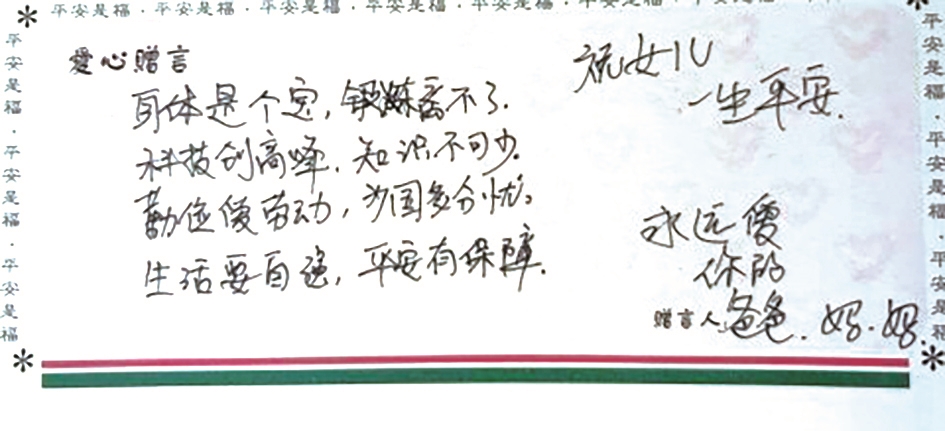 平安是福·平安是福·平安是福·平安是福·平安是福·平安是福·平安是福·平安是福
平安是福·平安是福·平安是福
愛心赠言
身体是个宝，锻炼离不了.
科技创高峰.知识不可少.
勤俭爱劳动，为国多分忧。
生活要自强，平安有保障.
祝女儿
一生平安.
永远爱
你的
赠言人 爸爸.妈.妈.
平安是福·平安是福·平安是福